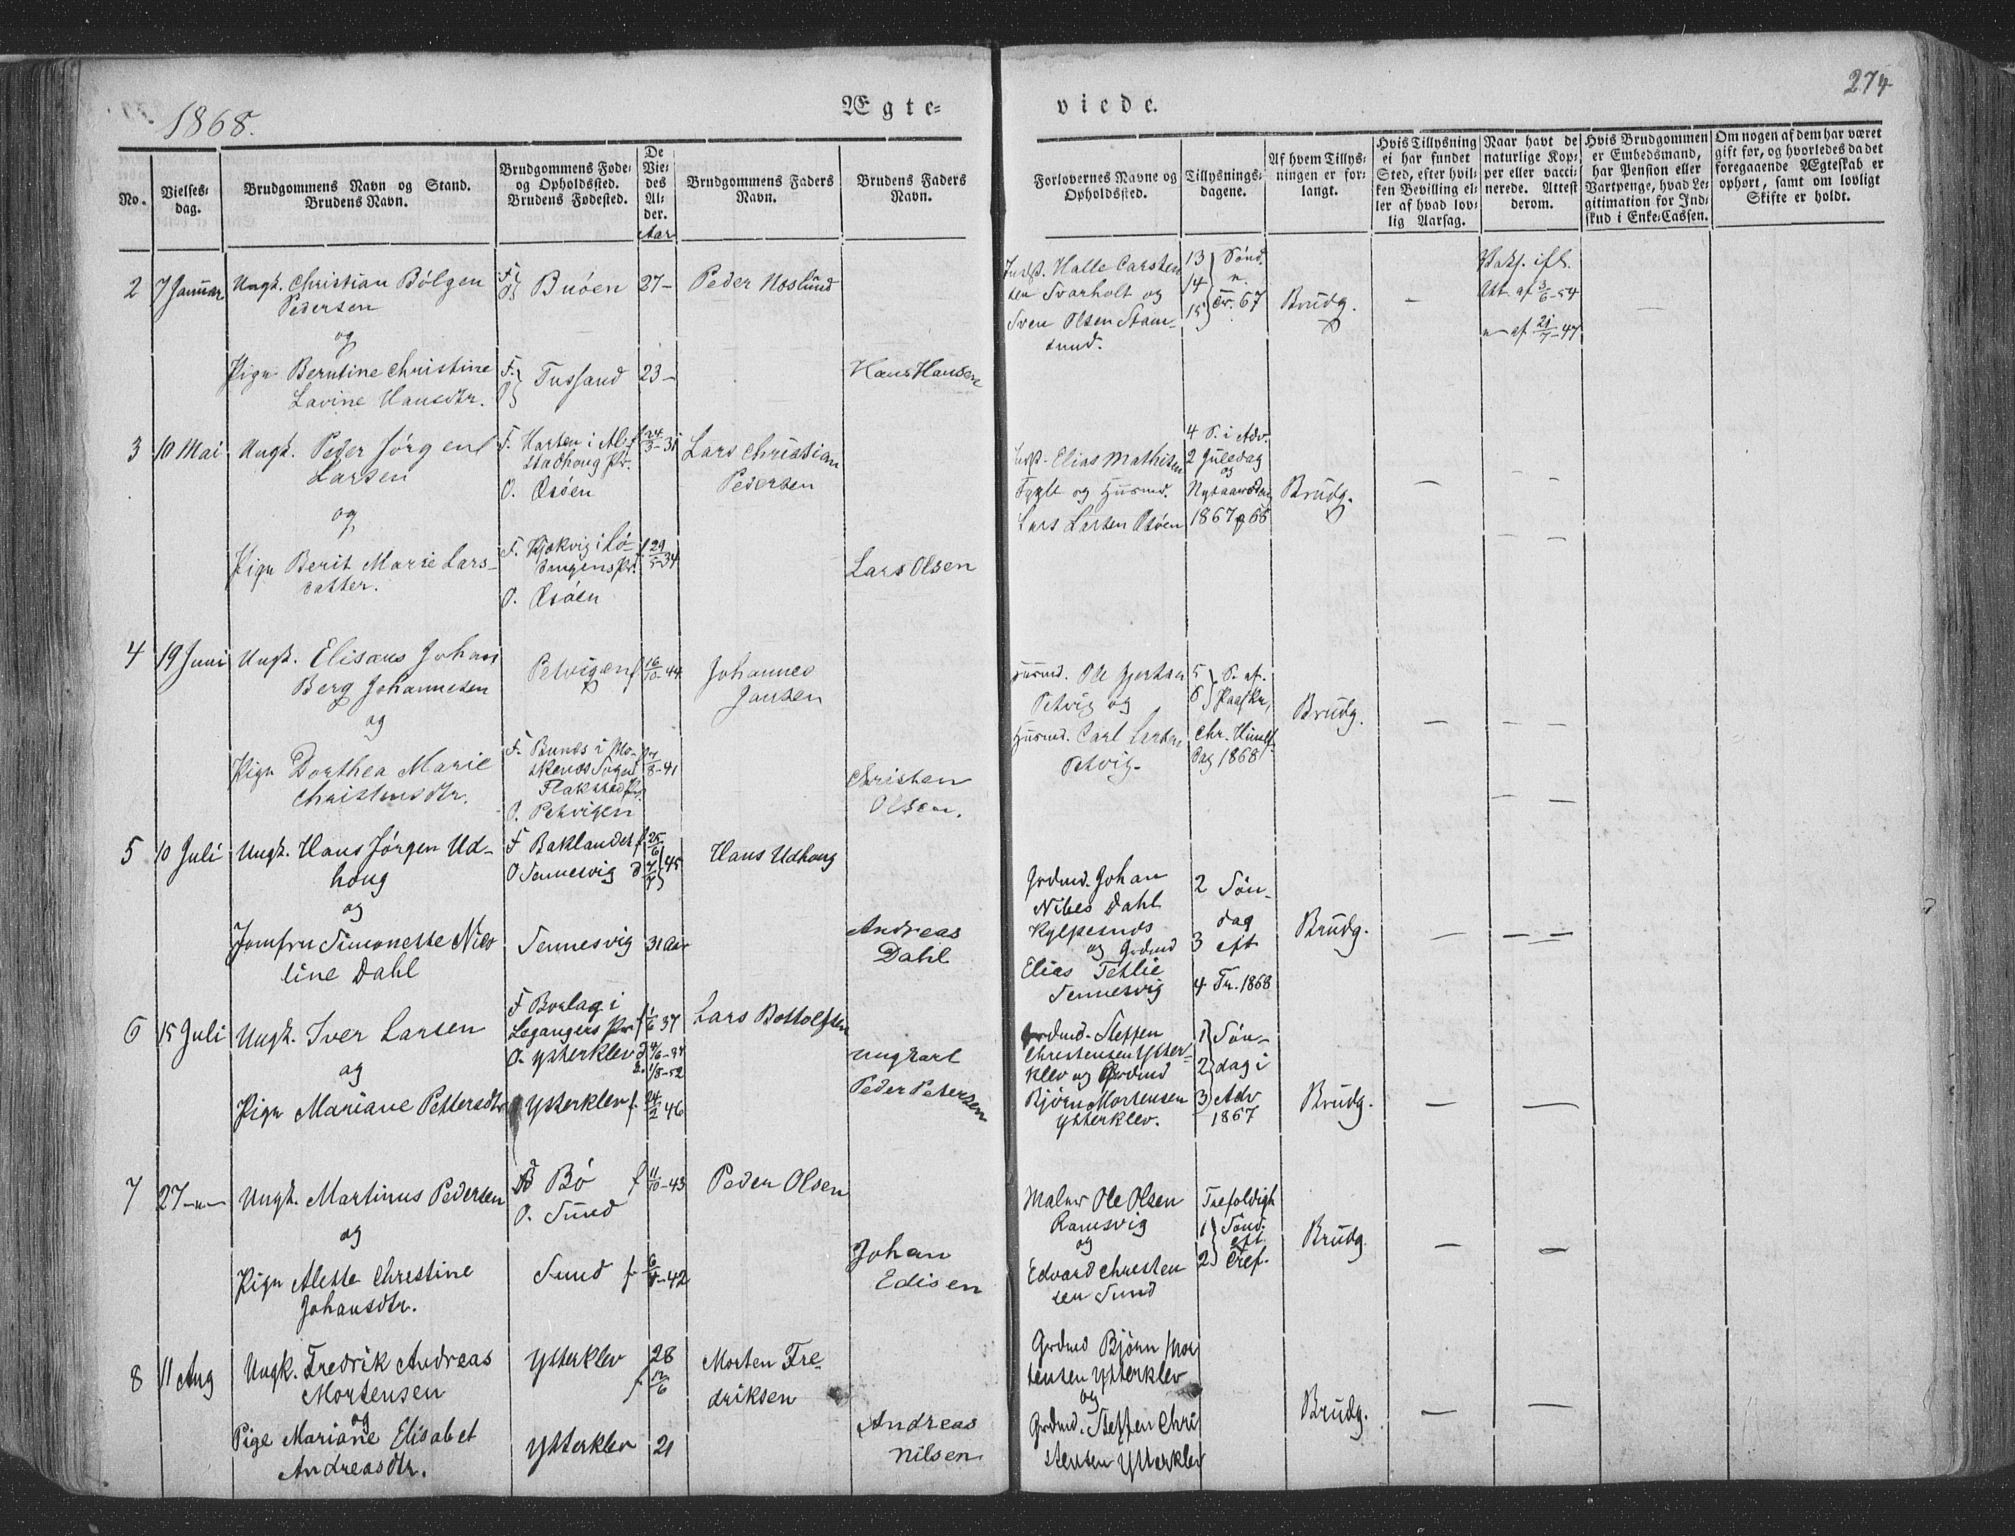 1868.
Ægte-
viede.
274
No.
Vielses-
dag.
Brudgommens Navn og Stand.
Brudens Navn.
Brudgommens Føde-
og Opholdssted.
Brudens Fødested.
De
Vie-
des
Al-
der.
Aar
Brudgommens Faders
Navn.
Brudens Faders
Navn.
Forlovernes Navne og
Opholdssted.
Tillysnings-
dagene.
Af hvem Tillys-
ningen er for-
langt.
Hvis Tillysning
ei har fundet
Sted, efter hvil-
ken Bevilling el-
ler af hvad lov-
lig Aarsag.
Naar havt de
naturlige Kop-
per eller vacci-
nerede. Attest
derom.
Hvis Brudgommen
er Embedsmand,
har Pension eller
Vartpenge, hvad Le-
gitimation for Ind-
skud i Enke-Cassen.
Om nogen af dem har været
gift før, og hvorledes da det
foregaaende Ægteskab er
ophørt, samt om lovligt
Skifte er holdt.
2 7 Januar Ungk. Christian Bølgen
Pedersen
og
Pige Berntine Christine
Lavine Hansdtr.
F.
O. Buøen 27-
F.
O. Tussand 23-
Peder Noslund
Hans Hansen
Halle Carsten-
sen Svarholt og
Sven Olsen Stam-
sund.
13
14
15
Sønd.
e.
Tr. 67
Brudg.
—
Att. af 3/6-54
af 21/7-47
3 10 Mai Ungk. Peder Jørgen
Larsen
og
Pige Berit Marie Lars-
datter.
F. Horten i Al-
stadhoug Pr.
O. Øsøen
f. 24/3-31
F. Kjøkvig i Lø-
dingens Pr.
O. Øsøen
f. 29/5-34
Lars Christian
Pedersen
Lars Olsen
Elias Mathisen
og Husmd.
Lars Larsen Øsøen
4 S. i Adv.
2 Juledag
og
Nytaarsdag
1867 og 68
Brudg.
—
4 19 Juni Ungk. Elisæus Johan
Berg Johannesen
og
Pige Dorthea Marie
Christensdtr.
Petvigen f. 16/10-44
F. Bunes i Mo-
skenes Sogn
Flakstad Pr.
O. Petvigen
/8-41
Johannes
Jansen
Christen
Olsen.
Husmd. Ole
Petvig og
Husmd. Carl Larsen
Petvig.
5
6
S. ef.
Paaske,
Chr. Himlf.
Dag 1868
Brudg.
— — —
— —
5 10 Juli Ungk. Hans Jørgen Ud-
houg
og
Jomfru Simonette Nico-
line Dahl
F Baklandet f 25/6
O Sennesvig d 7/7 45
Sennesvig 31 Aar
Hans Udhoug
Andreas
Dahl
Grdmd. Johan
Dahl
og Grdmd
Elias
Sennesvig
2
3
4
Søn-
dag
eft
Tr. 1868
Brudg.
— — —
6 15 Juli Ungk. Iver Larsen
og
Pige Mariane Pettersdtr
F Borlag i
Legangers Pr.
O. Ytterklev
f 1/6 37
1/8-52
Ytterklev f. 24/2 46
Lars Bottolfsen
Ungkarl
Peder Petersen
Grdmd. Steffen
Christensen Ytter-
klev og Grdmd
Bjørn Mortensen
Ytterklev.
1
2
3
Søn-
dag i
Adv
1867
Brudg.
— —
7 27 —"— Ungk. Martinus Pedersen
og
Pige Alette Christine
Johansdtr.
F Bø f 11/10-43
O. Sund
Sund f 6/4-42
Peder Olsen
Johan
Edisen
Maler Ole Olsen
Ramsvig
og
Edvard Christen
sen Sund
Trefoldigh
1
2
Sønd.
eft
Tref.
Brudg.
— —
8 11 Aug Ungk. Fredrik Andreas
Mortensen
og
Pige Mariane Elisabet
Andreasdtr.
Ytterklev 28
f 12/6
Ytterklev 21
Morten Fre-
driksen
Andreas
Nilsen
Grdmd Bjørn Mor
tensen Ytterklev
og
Grdmd. Steffen Chri
stensen Ytterklev
Brudg.
— —